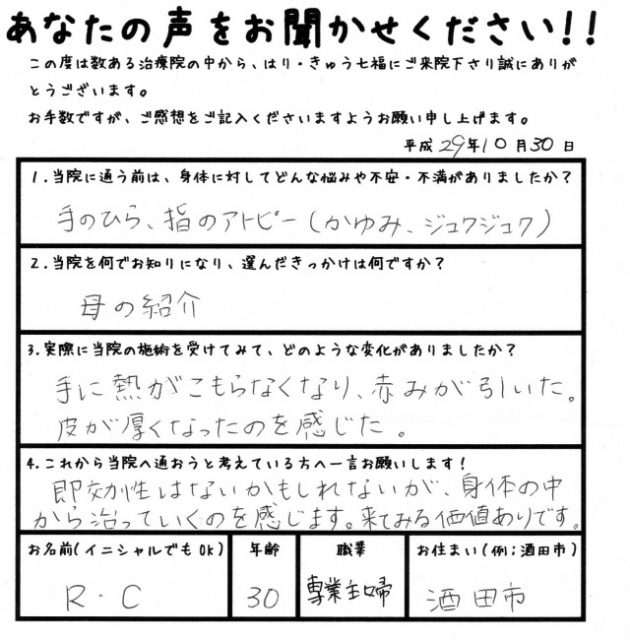 あなたの声をお聞かせください!!
この度は数ある治療院の中から、はり・きゅう七福にご来院下さり誠にありが
とうございます。
お手数ですが、ご感想をご記入くださいますようお願い申し上げます。
平成 29年10月30日
1.当院に通う前は、身体に対してどんな悩みや不安・不満がありましたか?
手のひら、指のアトピー(かゆみ、ジュクジュク)
2.当院を何でお知りになり、選んだきっかけは何ですか?
母の紹介
3.実際に当院の施術を受けてみて、どのような変化がありましたか?
手に熱がこもらなくなり、赤みが引いた。
皮が厚くなったのを感じた。
4.これから当院へ通おうと考えている方へ一言お願いします!
即効性はないかもしれないが、身体の中
から治っていくのを感じます。来てみる価値ありです。
お名前(イニシャルでもOK) 年齢 職業 お住まい(例;酒田市)
R・C 30 専業主婦 酒田市